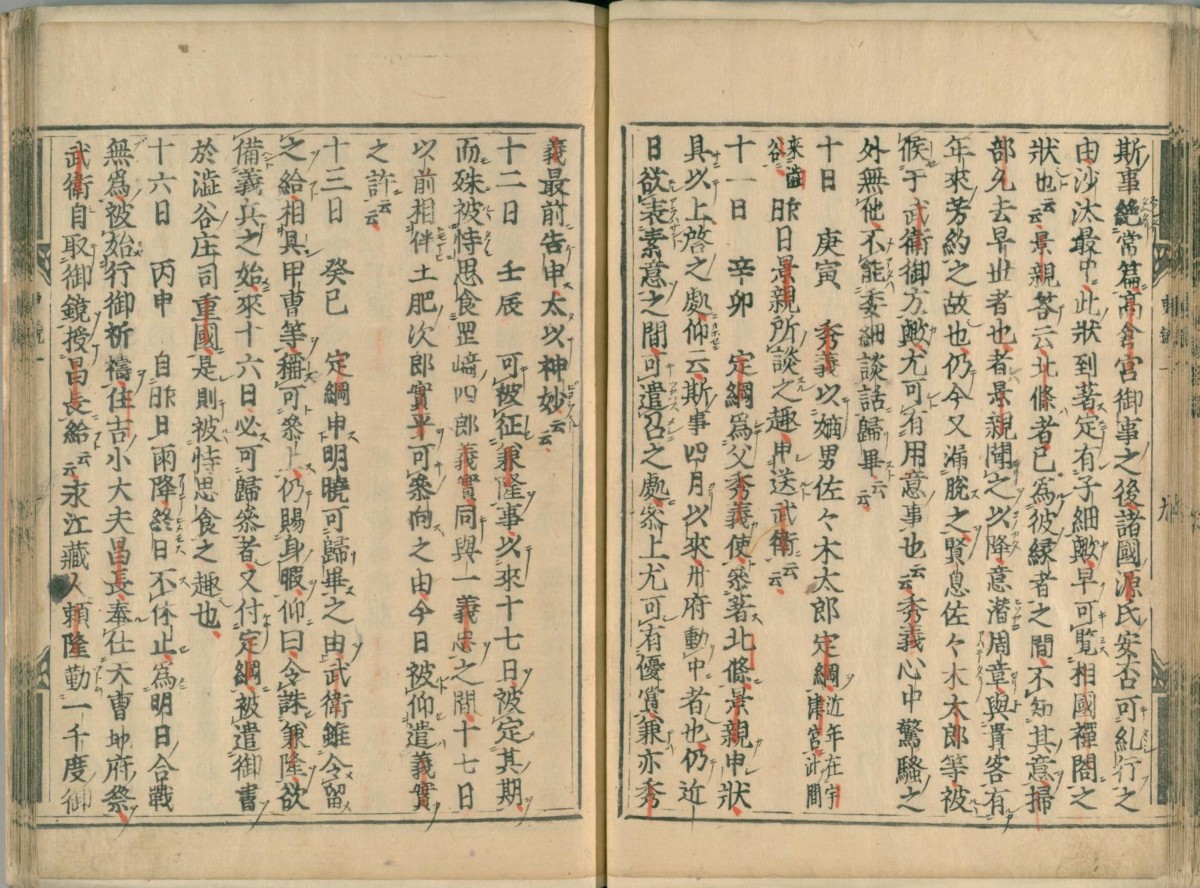 斯事絶常篇高倉宮御事之後諸國源氏安否可糺行之
由沙汰最中此狀到著定有子細歟早可覽相國禪閤之
狀也云云景親答云北條者已爲彼縁者之間不知其意掃
部允去早世者也者景親聞之以降意潜周章與貴客有
年來芳約之故也仍今又漏脱之賢息佐々木太郎等被
候于武衛御方歟尤可有用意事也云云秀義心中驚騷之
外無他不能委細談話歸畢云云
十日　庚寅　秀義以嫡男佐々木太郎定綱近年在宇津宮此間
来澁谷昨日景親所談之趣申送武衛云云
十一日　辛卯　定綱爲父秀義使參著北條景親申狀
具以上啓之處仰云斯事四月以來丹府動中者也仍近
日欲表素意之間可遣召之處參上尤可有優賞兼亦秀
義最前告申太以神妙云云
十二日　壬辰　可被征兼隆事以來十七日被定其期
而殊被恃思食罡﨑四郎義實同與一義忠之間十七日
以前相伴土肥次郎實平可參向之由今日被仰遣義實
之許云云
十三日　癸巳　定綱申明曉可歸畢之由武衛雖令留
之給相具甲曹等稱可參上仍賜身暇仰曰令誅兼隆欲
備義兵之始來十六日必可歸參者又付定綱被遣御書
於澁谷庄司重國是則被恃思食之趣也
十六日　丙申　自昨日雨降終日不休止爲明日合戰
無爲被始行御祈禱住吉小大夫昌長奉仕天曹地府祭
武衛自取御鏡授昌長給云云永江藏人頼隆勤一千度御
九